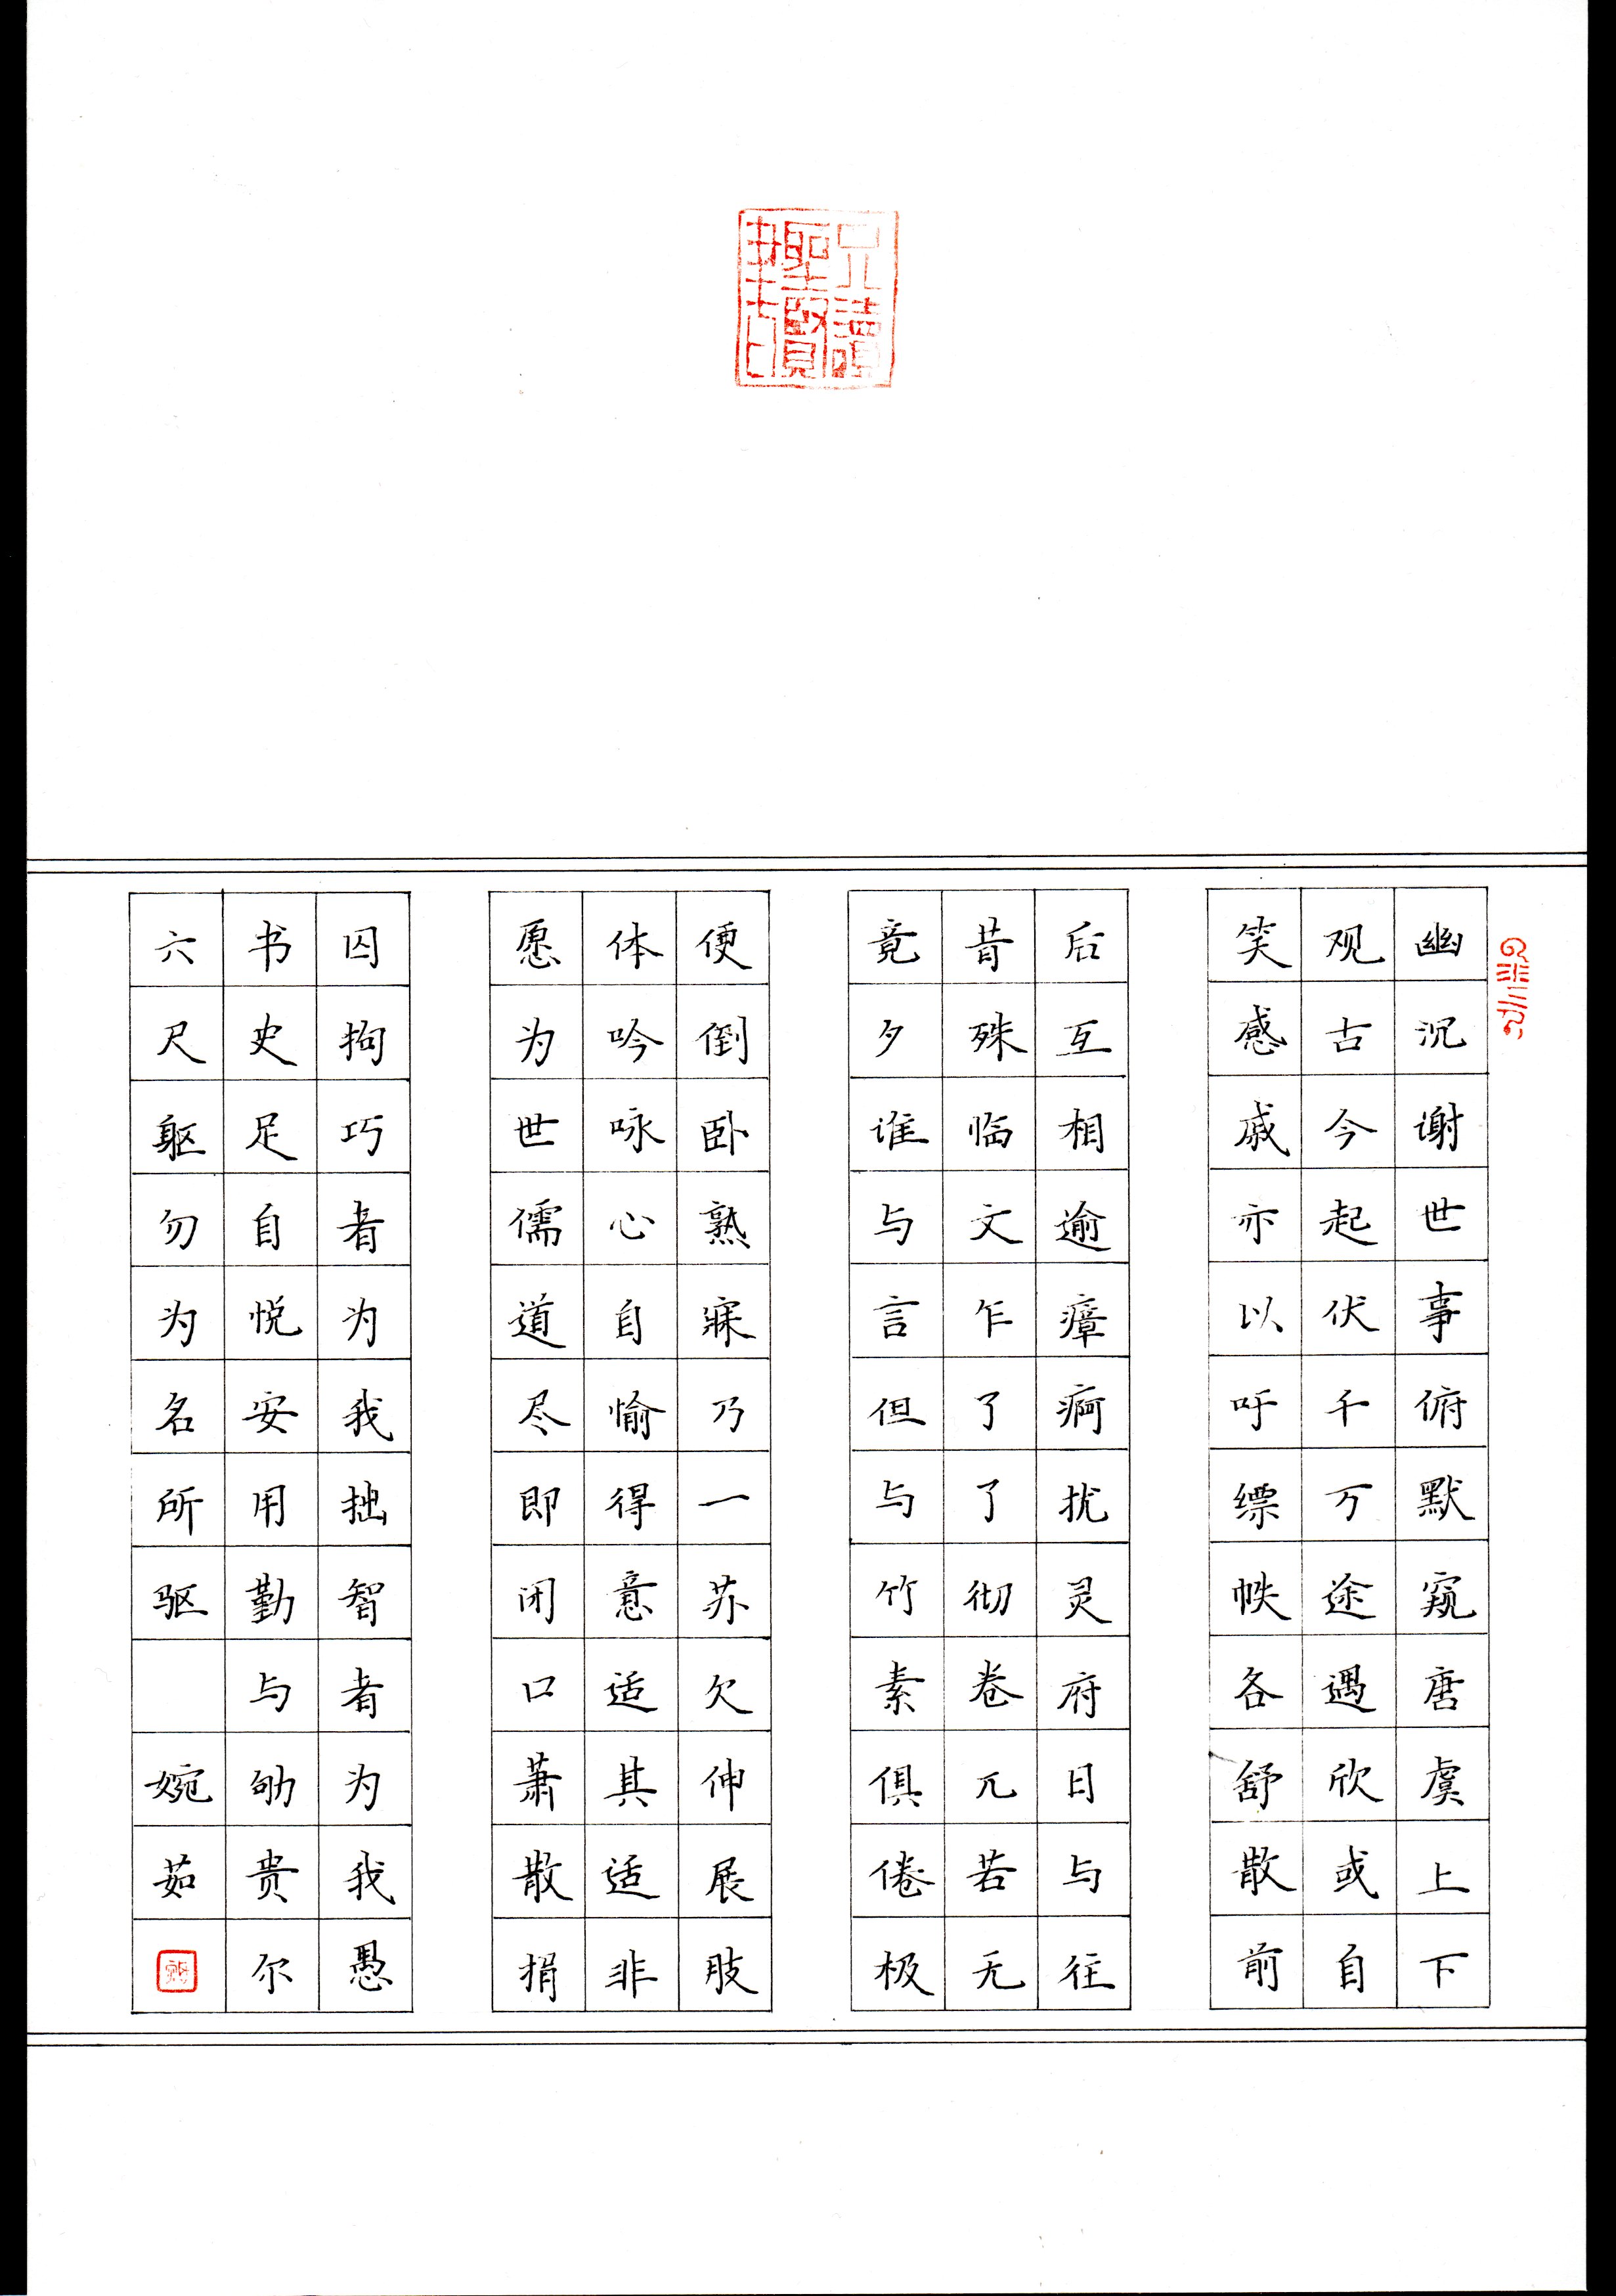 幽沉谢世事俯默窥唐虞上下
观古今起伏千万途遇欣或自
笑感戚亦以吁缥帙各舒散前
后互相逾瘴痾扰灵府日与往
昔殊临文乍了了彻卷兀若无
竟夕谁与言但与竹素俱倦极
便倒卧熟寐乃一苏欠伸展肢
体吟咏心自愉得意适其适非
愿为世儒道尽即闭口萧散捐
囚拘巧者为我拙智者为我愚
书史足自悦安用勤与劬贵尔
六尺躯勿为名所驱 婉茹